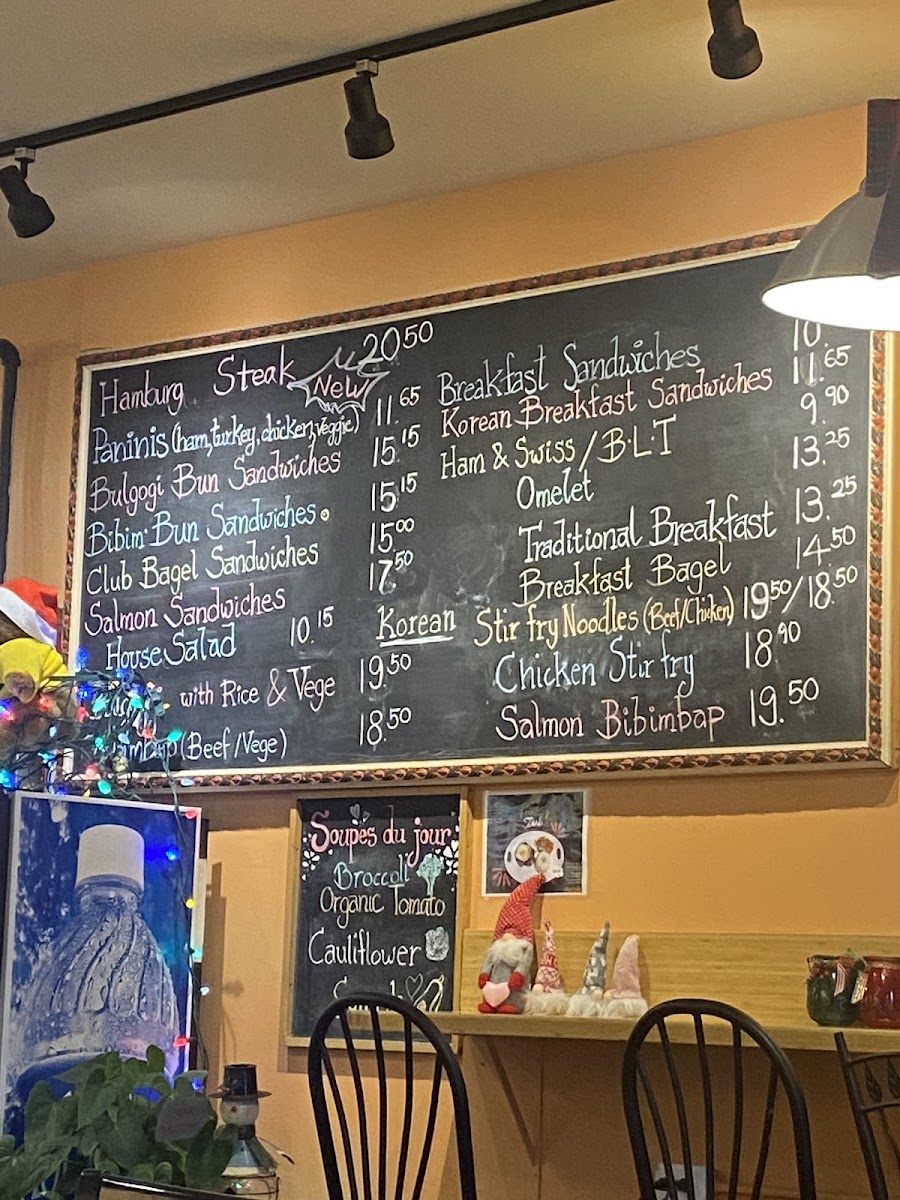 Hamburg Steak New 20.50
Paninis (ham, turkey, chicken, veggie) 11.65
Bulgogi Bun Sandwiches 15.15
Bibim Bun Sandwiches 15.15
Club Bagel Sandwiches 15.00
Salmon Sandwiches 17.50
House Salad 10.15
with Rice & Vege 19.50
(Beef/Vege) 18.50
Breakfast Sandwiches 10.
Korean Breakfast Sandwiches 11.65
Ham & Swiss / B.L.T 9.90
Omelet 13.25
Traditional Breakfast 13.25
Breakfast Bagel 14.50
Korean Stir fry Noodles (Beef/Chicken) 19.50/18.50
Chicken Stir fry 18.90
Salmon Bibimbap 19.50
Soupes du jour
Broccoli
Organic Tomato
Cauliflower